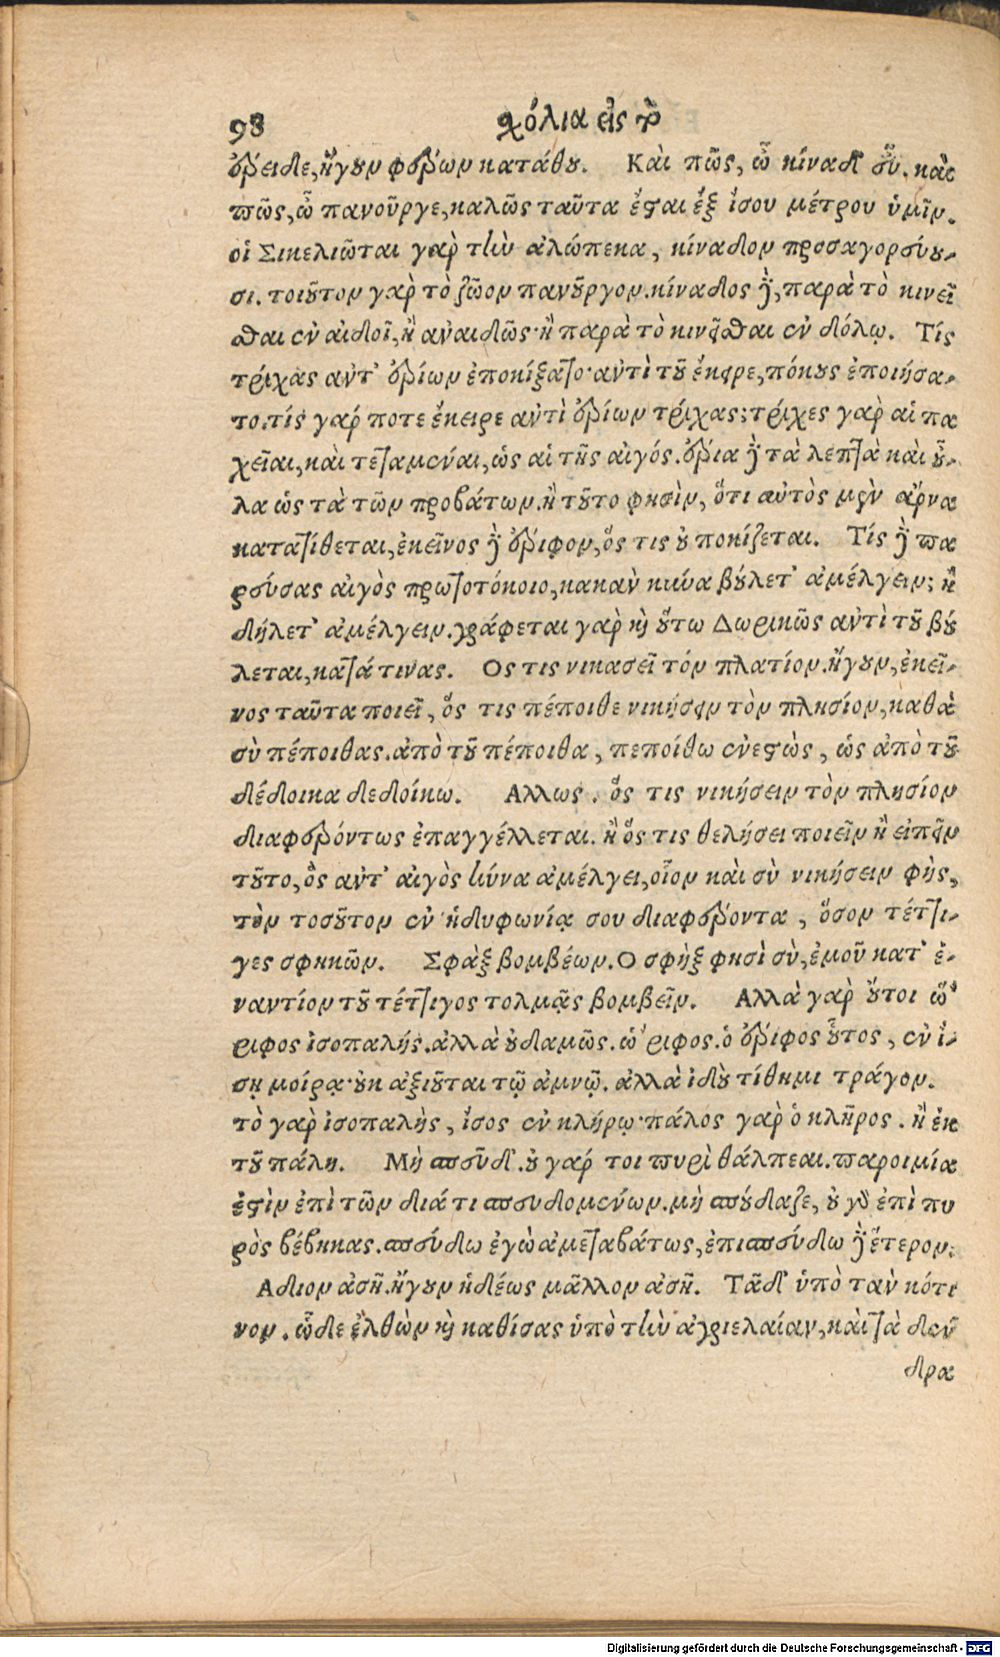 98 σχόλια εἰς τὸ
ἔρειδε, ἤγουν φέρων κατάθου. Καὶ πῶς, ὦ κίναδ' εὖ. καὶ
πῶς, ὦ πανοῦργε, καλῶς ταῦτα ἔσται ἐξ ἴσου μέτρου ὑμῖν.
οἱ Σικελιῶται γὰρ τὴν ἀλώπεκα, κίναδον προσαγορεύου-
σι. τοιοῦτον γὰρ τὸ ζῶον πανοῦργον. κίναδος δὲ, παρὰ τὸ κινεῖ
σθαι ἐν αἰδοῖ, ἢ ἀναιδῶς· ἢ παρὰ τὸ κινεῖσθαι ἐν δόλῳ. Τίς
τρίχας ἀντ' ἐρίων ἐποκίξατο· ἀντὶ τοῦ ἔκειρε, πόκους ἐποιήσα-
το. τίς γάρ ποτε ἔκειρε ἀντὶ ἐρίων τρίχας; τρίχες γὰρ αἱ πα
χεῖαι, καὶ τεταμέναι, ὡς αἱ τῆς αἰγός. ἔρια δὲ τὰ λεπτὰ καὶ οὖ-
λα ὡς τὰ τῶν προβάτων. ἢ τοῦτο φησὶν, ὅτι αὐτὸς μὲν ἄρνα
κατατίθεται, ἐκεῖνος δὲ ἔριφον, ὅς τις οὐ ποκίζεται. Τίς δὲ πα
ρεύσας αἰγὸς πρωτοτόκοιο, κακὰν κύνα βούλετ' ἀμέλγειν; ἢ
δήλετ' ἀμέλγειν. γράφεται γὰρ καὶ οὕτω Δωρικῶς ἀντὶ τοῦ βού
λεται, κατά τινας. Ος τις νικασεῖ τόν πλατίον. ἤγουν, ἐκεῖ-
νος ταῦτα ποιεῖ, ὅς τις πέποιθε νικήσειν τὸν πλησίον, καθὰ
σὺ πέποιθας. ἀπὸ τοῦ πέποιθα, πεποίθω ἐνεστὼς, ὡς ἀπὸ τοῦ
δέδοικα δεδοίκω. Αλλως. ὅς τις νικήσειν τὸν πλησίον
διαφερόντως ἐπαγγέλλεται. ἢ ὅς τις θελήσει ποιεῖν ἢ εἰπεῖν
τοῦτο, ὃς ἀντ' αἰγὸς κύνα ἀμέλγει, οἷον καὶ σὺ νικήσειν φῂς,
τὸν τοσοῦτον ἐν ἡδυφωνίᾳ σου διαφέροντα, ὅσον τέττι-
γες σφηκῶν. Σφὰξ βομβέων. Ο σφὴξ φησὶ σὺ, ἐμοῦ κατ' ἐ-
ναντίον τοῦ τέττιγος τολμᾷς βομβεῖν. Αλλὰ γὰρ οὔτοι ὥ'
ριφος ἰσοπαλής. ἀλλὰ οὐδαμῶς. ὡ'ριφος. ὁ ἔριφος οὗτος, ἐν ἴ-
σῃ μοίρᾳ· οὐκ ἀξιοῦται τῷ ἀμνῷ. ἀλλὰ ἰδοὺ τίθημι τράγον.
τὸ γὰρ ἰσοπαλὴς, ἴσος ἐν κλήρῳ· πάλος γὰρ ὁ κλῆρος. ἢ ἐκ
τοῦ πάλη. Μὴ σπεῦδ'. οὐ γάρ τοι πυρὶ θάλπεαι. παροιμία
ἐστὶν ἐπὶ τῶν διά τι σπευδομένων. μὴ σπούδαζε, οὐ γὰρ ἐπὶ πυ
ρὸς βέβηκας. σπεύδω ἐγὼ ἀμεταβάτως, ἐπισπεύδω δὲ ἕτερον.
Αδιον ἀσῇ. ἤγουν ἡδέως μᾶλλον ἀσῇ. Τᾶδ' ὑπὸ τὰν κότι
νον. ὧδε ἐλθὼν καὶ καθίσας ὑπὸ τὴν ἀγριελαίαν, καὶ τὰ δέν
δρα
Digitalisierung gefördert durch die Deutsche Forschungsgemeinschaft - DFG